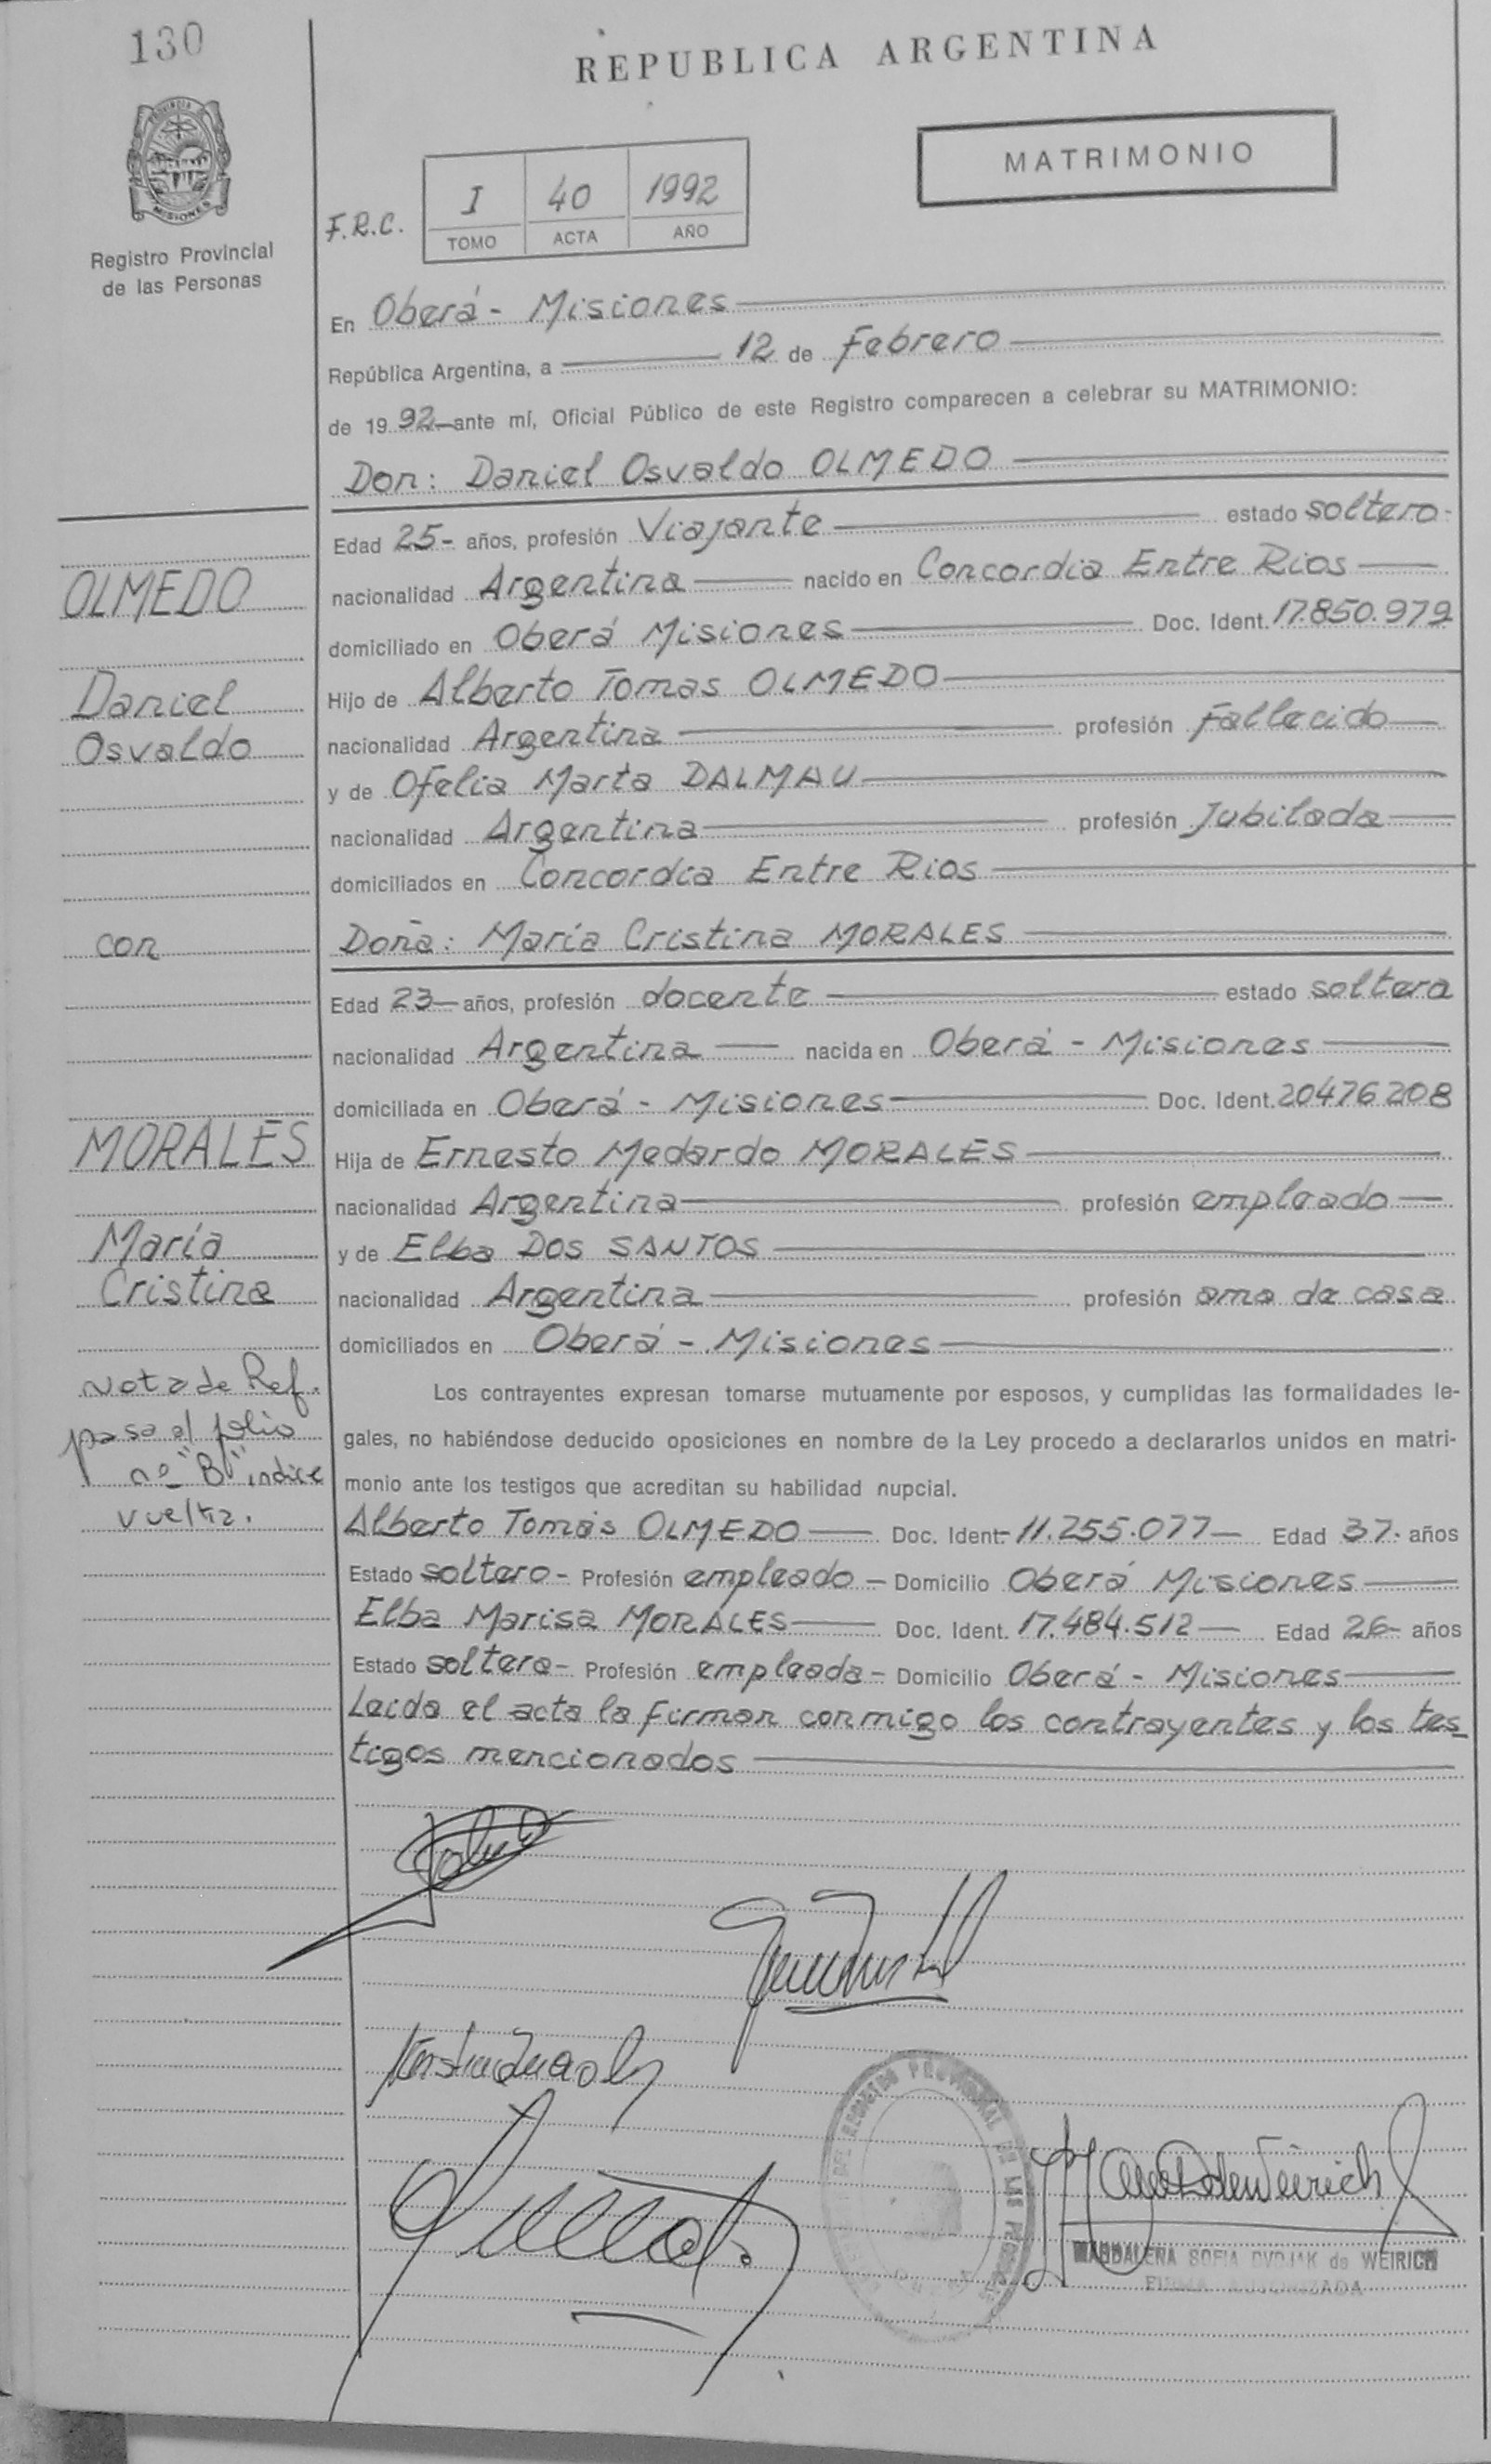 130
REPUBLICA ARGENTINA
MATRIMONIO
PROVINCIA
MISIONES
Registro Provincial
de las Personas
F.R.C.
I 40 1992
TOMO ACTA AÑO
En Oberá - Misiones
República Argentina, a 12 de Febrero
de 19 92 ante mí, Oficial Público de este Registro comparecen a celebrar su MATRIMONIO:
Don: Daniel Osvaldo OLMEDO
Edad 25- años, profesión Viajante estado soltero-
nacionalidad Argentina nacido en Concordia Entre Rios
domiciliado en Oberá Misiones Doc. Ident. 17.850.979
Hijo de Alberto Tomas OLMEDO
nacionalidad Argentina profesión Fallecido
y de Ofelia Marta DALMAU
nacionalidad Argentina profesión Jubilada
domiciliados en Concordia Entre Rios
Doña: María Cristina MORALES
Edad 23 años, profesión docente estado soltera
nacionalidad Argentina nacida en Oberá - Misiones
domiciliada en Oberá - Misiones Doc. Ident. 20476208
Hija de Ernesto Medardo MORALES
nacionalidad Argentina profesión empleado
y de Elba DOS SANTOS
nacionalidad Argentina profesión ama de casa
domiciliados en Oberá - Misiones
Los contrayentes expresan tomarse mutuamente por esposos, y cumplidas las formalidades le-
gales, no habiéndose deducido oposiciones en nombre de la Ley procedo a declararlos unidos en matri-
monio ante los testigos que acreditan su habilidad nupcial.
Alberto Tomás OLMEDO Doc. Ident. 11.255.077 Edad 37 años
Estado soltero- Profesión empleado - Domicilio Oberá Misiones
Elba Marisa MORALES Doc. Ident. 17.484.512 Edad 26- años
Estado soltera- Profesión empleada- Domicilio Oberá - Misiones
Leida el acta la firman conmigo los contrayentes y los tes-
tigos mencionados
OLMEDO
Daniel
Osvaldo
con
MORALES
María
Cristina
Nota de Ref.
pasa al folio
nº "B" indice
vuelta.
DEL REGISTRO PROVINCIAL DE LAS PERSONAS
MAGDALENA SOFIA DVOJAK de WEIRICH
FIRMA AUTORIZADA